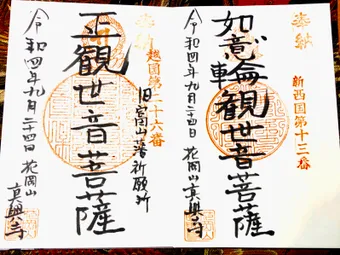 奉納
新西国第十三番
如意輪観世音菩薩
令和四年九月二十四日 花岡山
真興寺
奉納
越国第二十六番
旧富山藩祈願所
正観世音菩薩
令和四年九月二十四日 花岡山
真興寺